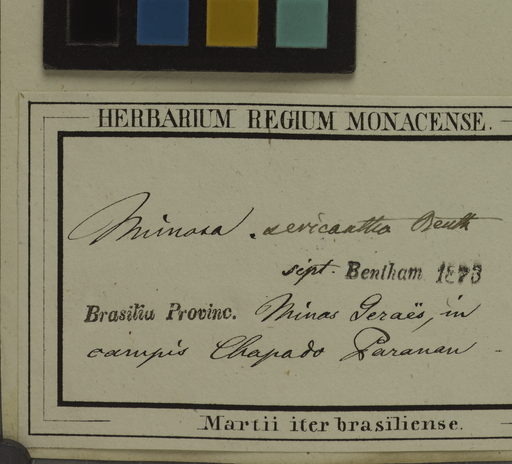 HERBARIUM REGIUM MONACENSE.
Mimosa sericantha Benth
sipt. Bentham 1873
Brasilia Provinc. Minas Geraës, in
campis Chapado Paranan -
Martii iter brasiliense.